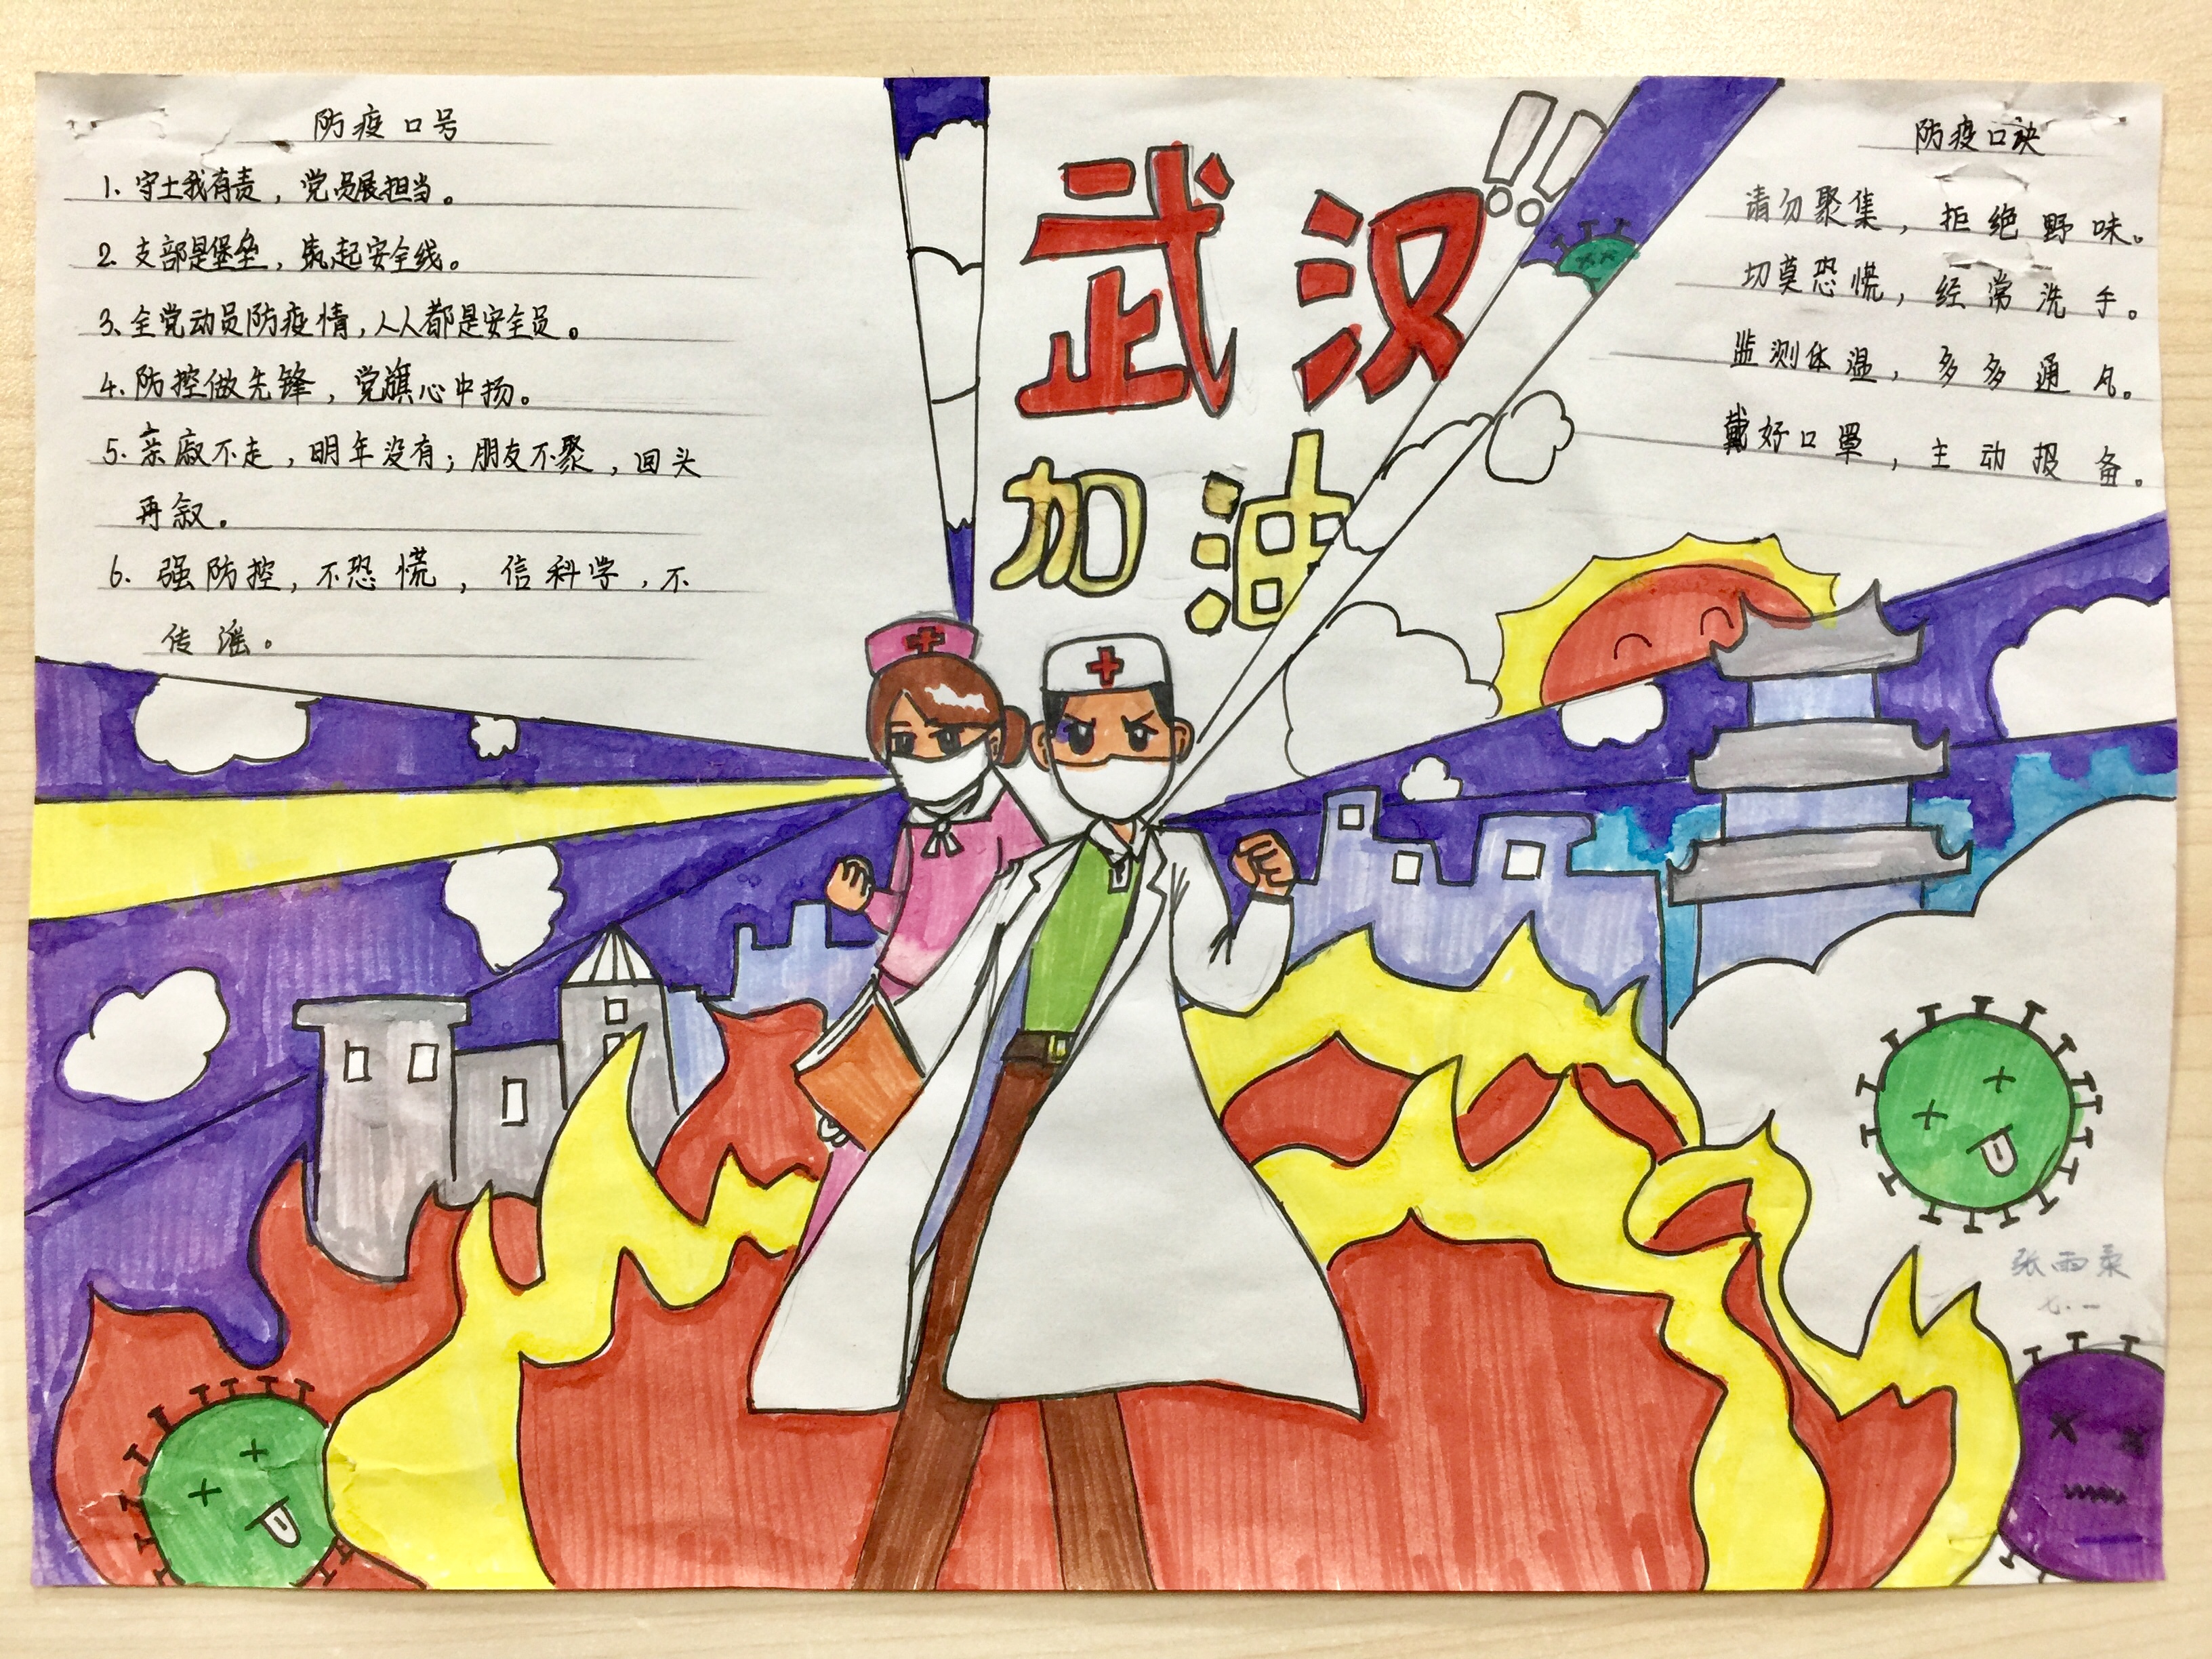 防疫口号
1. 守土我有责，党员展担当。
2. 支部是堡垒，筑起安全线。
3. 全党动员防疫情，人人都是安全员。
4. 防控做先锋，党旗心中扬。
5. 亲戚不走，明年没有；朋友不聚，回头
再叙。
6. 强防控，不恐慌，信科学，不
传谣。
武汉!!
加油
防疫口诀
请勿聚集，拒绝野味。
切莫恐慌，经常洗手。
监测体温，多多通风。
戴好口罩，主动报备。
张雨
七.一